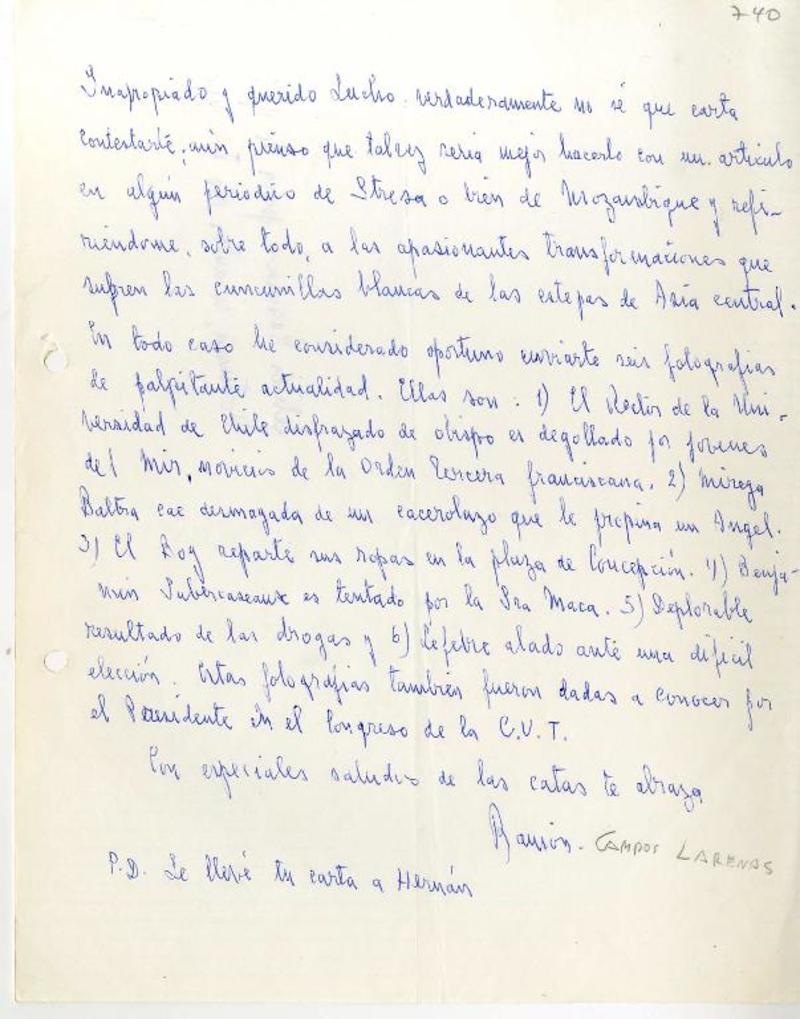 740
Inapropiado y querido Lucho. Verdaderamente no sé que carta
contestarte; aún pienso que talvez sería mejor hacerlo con un artículo
en algún periódico de Stresa o bien de Mozambique y refi-
riéndome, sobre todo, a las apasionantes transformaciones que
sufren las cuncunillas blancas de las estepas de Asia central.
En todo caso he considerado oportuno enviarte seis fotografías
de palpitante actualidad. Ellas son: 1) El Rector de la Uni-
versidad de Chile disfrazado de obispo es degollado por jóvenes
del Mir, novicios de la Orden Tercera franciscana. 2) Mireya
Baltra cae desmayada de un cacerolazo que le propina un Angel.
3) El Boy reparte sus ropas en la plaza de Concepción. 4) Benja-
mín Subercaseaux es tentado por la Sra Maca. 5) Deplorable
resultado de las drogas y 6) Lefebre alado ante una difícil
elección. Estas fotografías también fueron dadas a conocer por
el Presidente en el Congreso de la C.U.T.
Con especiales saludos de las catas te abraza
Ramón. CAMPOS LARENAS
P.D. Le llevé tu carta a Hernán